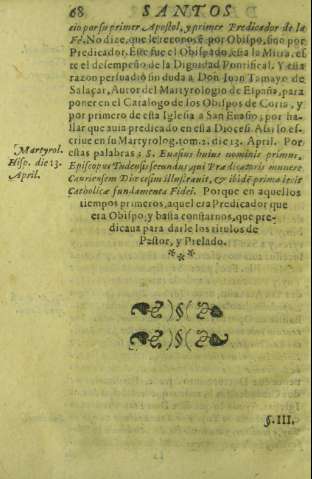 68 SANTOS
cio por su primer Apostol, y primer Predicador de la
Fè. No dize, que le reconoce por Obispo, sino por
Predicador. Este fue el Obispado, esta la Mitra, es
te el desempeño de la Dignidad Pontifical. Y esta
razon persuadiò sin duda a Don Juan Tamayo de
Salaçar, Autor del Martyrologio de España, para
poner en el Catalogo de los Obispos de Coria, y
por primero de esta Iglesia a San Euasio; por ha-
llar que auia predicado en esta Diocesi. Assi lo es-
criue en su Martyrolog. tom. 2. die 13. April. Por
Martyrol.
Hisp. die 13.
April.
estas palabras; S. Euasius huius nominis primus,
Episcopus Tudensis secundus, qui Prædicatoris munere
Cauriensem Diœcesim illustrauit, & ibi de prima iecit
Catholicæ fundamenta Fidei. Porque en aquellos
tiempos primeros, aquel era Predicador que
era Obispo; y basta constarnos, que pre-
dicaua para darle los titulos de
Pastor, y Prelado.
***
)§(
)§(
§. III.